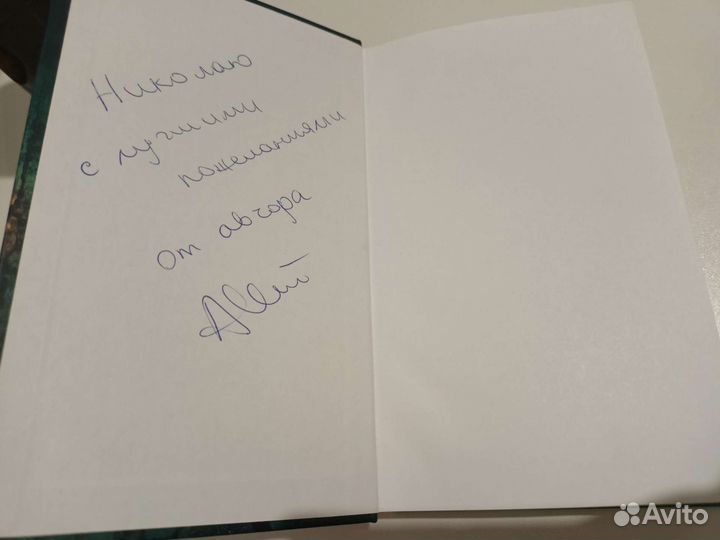 Николаю
с лучшими
пожеланиями
от автора
Avito